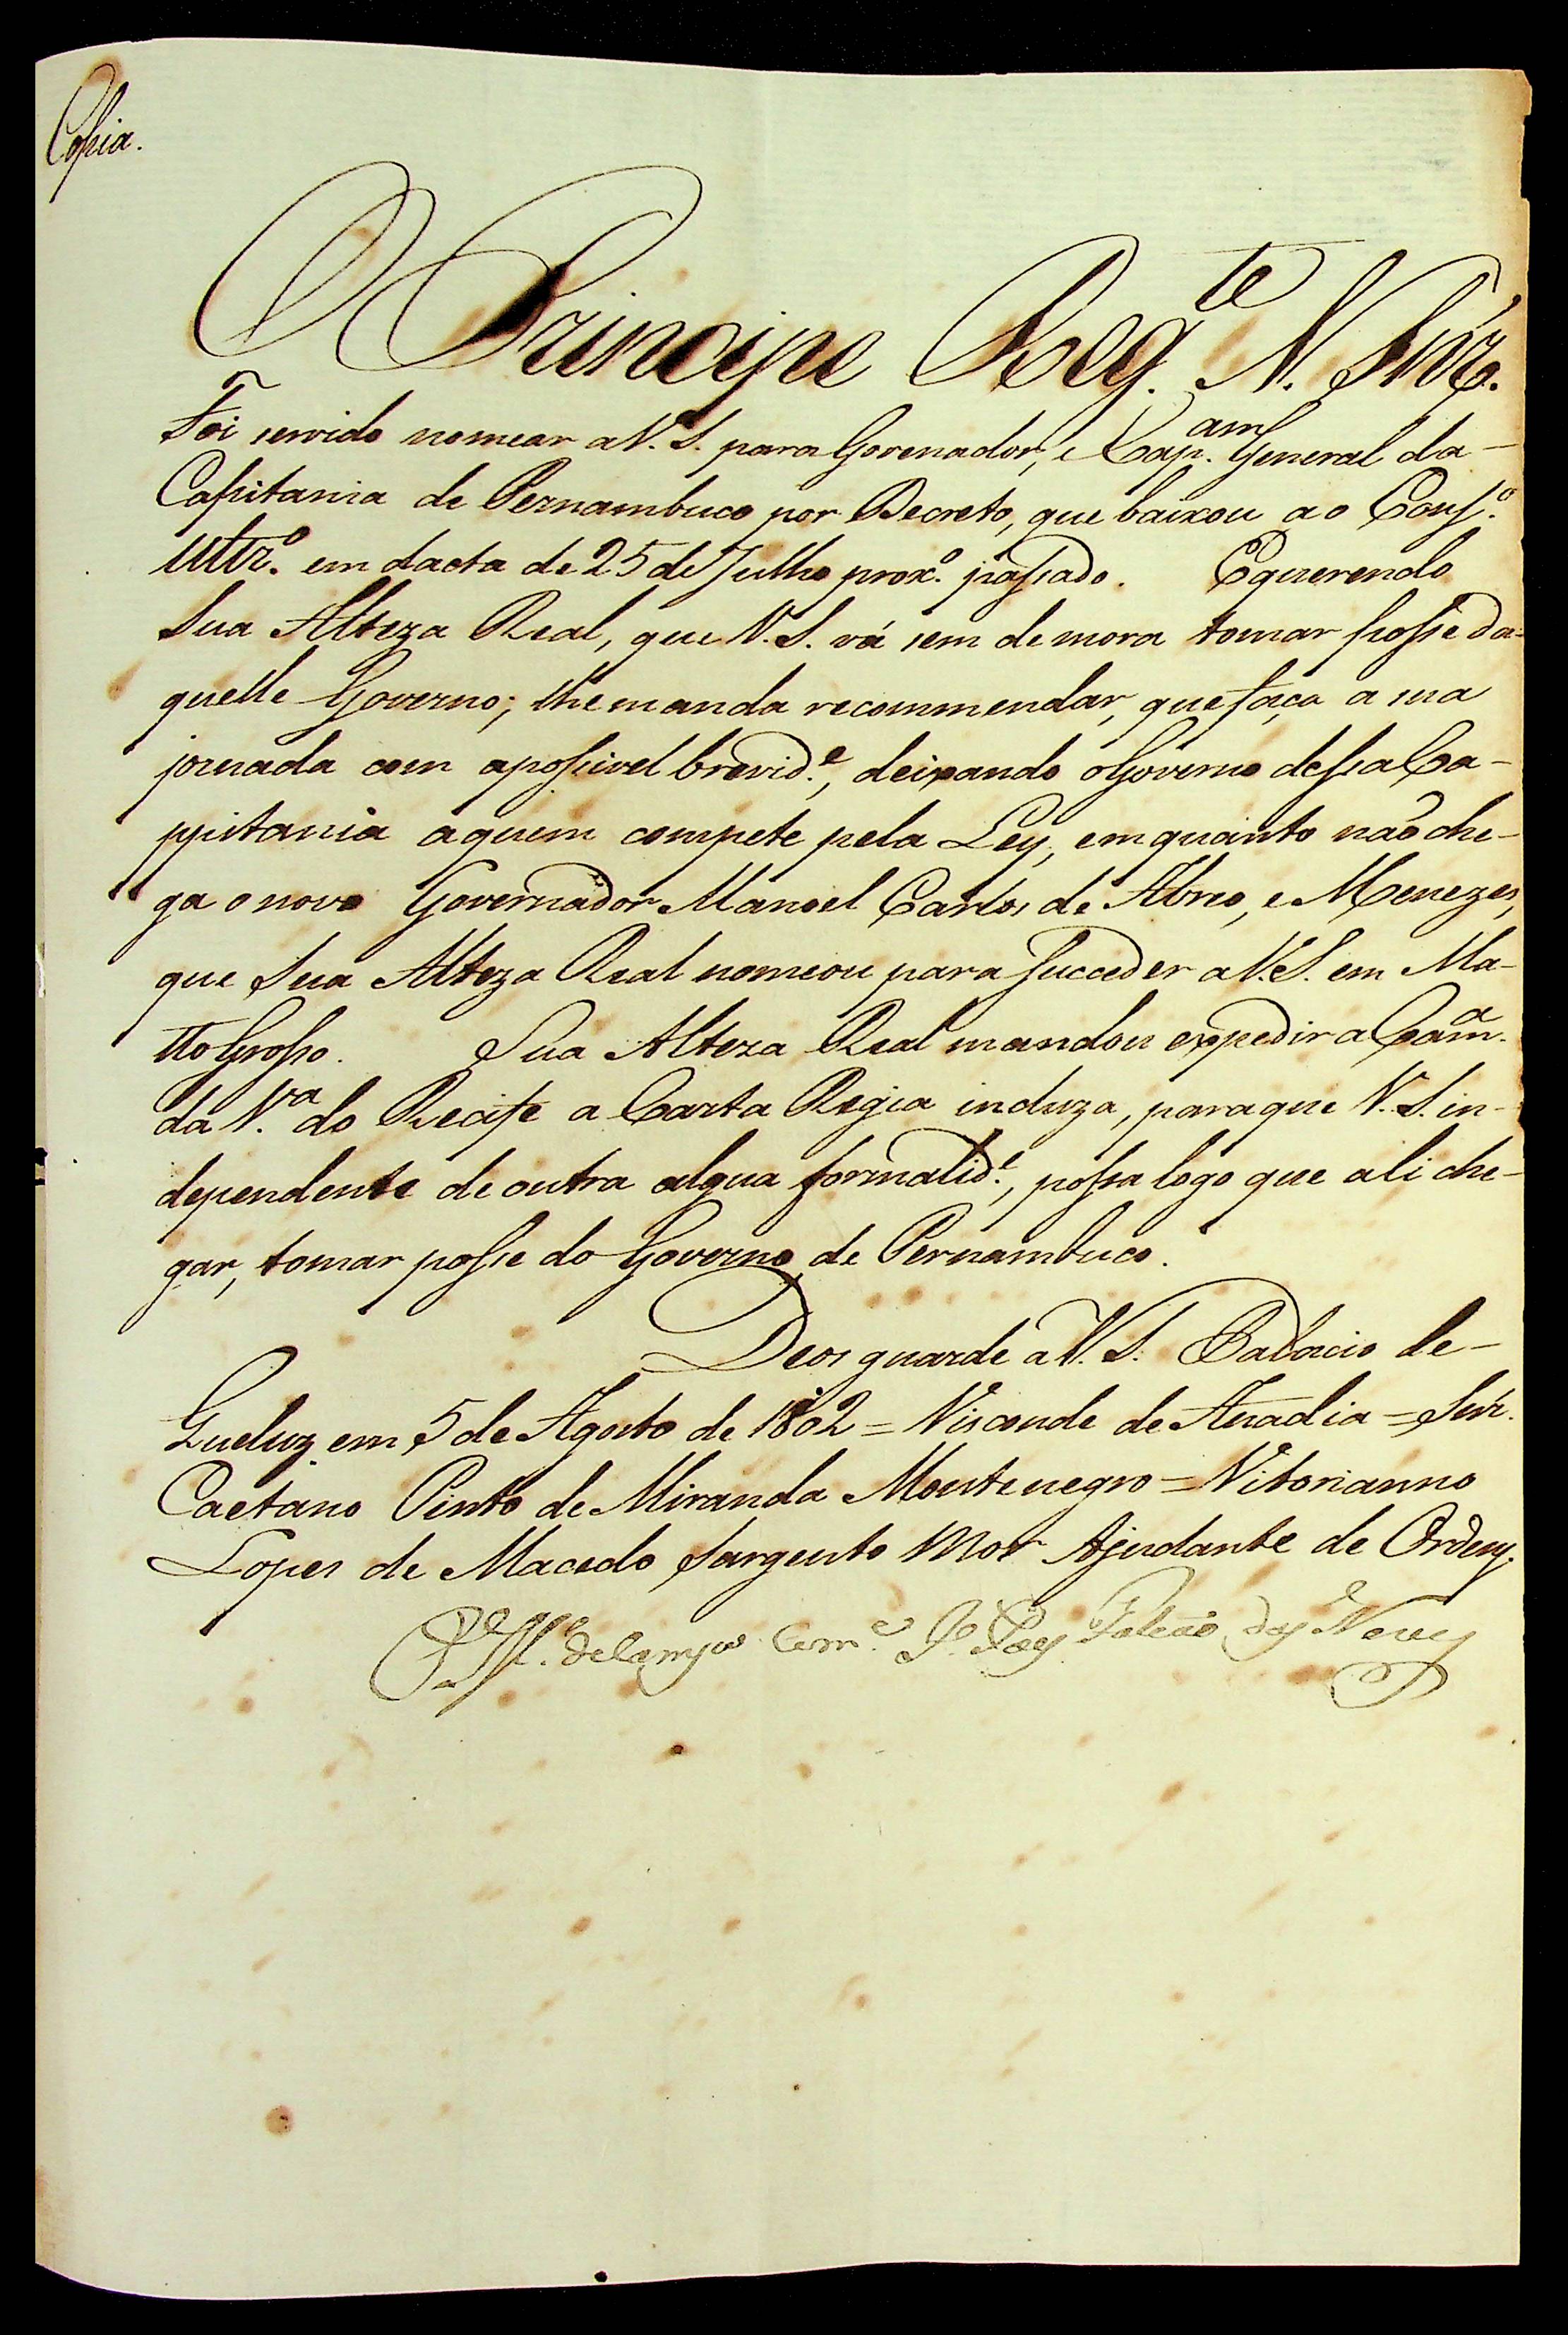 Copia.
O Principe Reg.te N. Snr.
Foi servido nomear a V. S. para Governador, e Cap.am General da
Capitania de Pernambuco por Decreto, que baixou ao Cons.o
Ultr.o em dacta de 25 de Julho prox.o passado. E querendo
Sua Alteza Real, que V. S. vá sem demora tomar posse da-
quelle Governo; lhe manda recommendar, que faça a sua
jornada com a possivel brevid.e, deixando o Governo dessa Ca-
ppitania a quem compete pela Ley, em quanto não che-
ga o novo Governador Manoel Carlos de Abreo, e Menezes,
que Sua Alteza Real nomeou para succeder a V. S. em Ma-
tto Grosso. Sua Alteza Real mandou expedir a Cam.a
da V.a do Recife a Carta Regiaincluza, para que V. S. in-
dependente de outra algua formalid.e, possa logo que ali che-
gar, tomar posse do Governo de Pernambuco.
Deos guarde a V. S. Palacio de
Queluz em 5 de Agosto de 1802 = Visconde de Anadia = Snr.
Caetano Pinto de Miranda Montenegro = Vitorianno
Lopes de Macedo Sargento Mor Ajudante de Ordens.
de Falcão das Neves